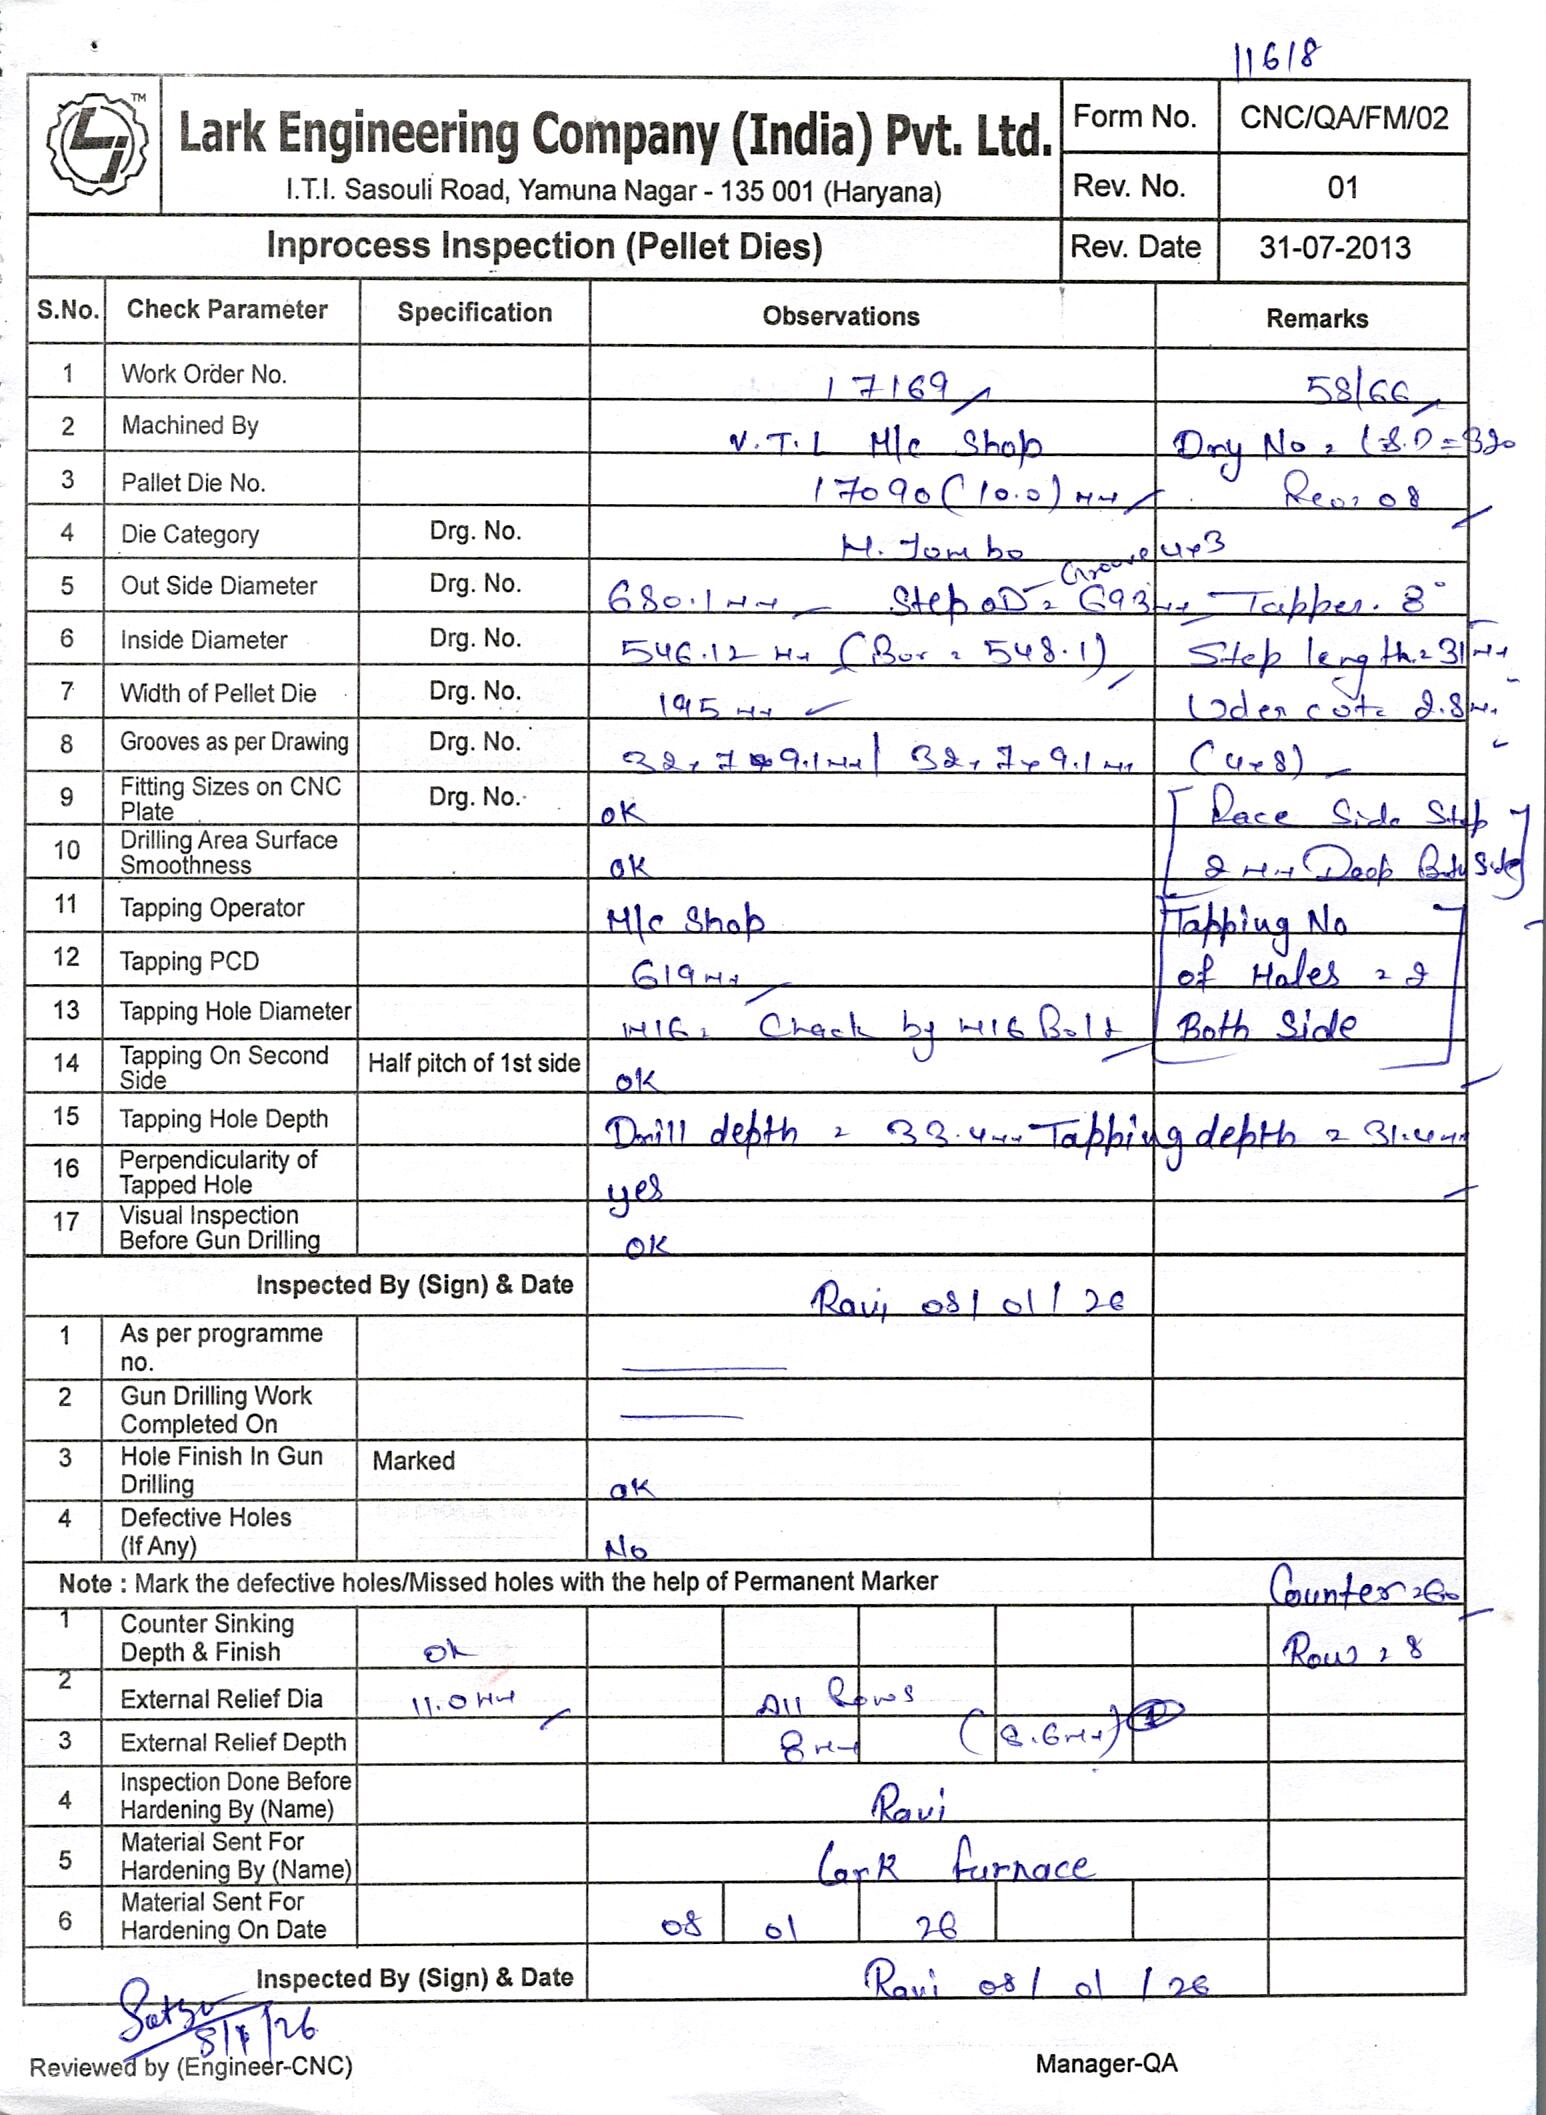 11618
TM
Lark Engineering Company (India) Pvt. Ltd.
I.T.I. Sasouli Road, Yamuna Nagar - 135 001 (Haryana)
Form No. CNC/QA/FM/02
Rev. No. 01
Inprocess Inspection (Pellet Dies) Rev. Date 31-07-2013
S.No. Check Parameter Specification Observations Remarks
1 Work Order No. 17169 58/66
2 Machined By V.T.L M/c Shop Drg No = (S.D = 320
3 Pallet Die No. 17090 (10.0) mm Rev = 08
4 Die Category Drg. No. M. Jombo
Groove 4x3
5 Out Side Diameter Drg. No. 680.1 mm Step OD = 693 mm Tapper. 8°
6 Inside Diameter Drg. No. 546.12 mm (Bor = 548.1) Step length = 31 mm
7 Width of Pellet Die Drg. No. 195 mm Uder cut = 2.8 mm
8 Grooves as per Drawing Drg. No. 32 x 7 x 9.1 mm / 32 x 7 x 9.1 mm (4x8)
9 Fitting Sizes on CNC Plate Drg. No. ok Race Side Step
10 Drilling Area Surface Smoothness ok 2 mm Deep Both Side
11 Tapping Operator M/c Shop Tapping No
12 Tapping PCD 619 mm of Holes = 2
13 Tapping Hole Diameter M16 = Chack by M16 Bolt Both Side
14 Tapping On Second Side Half pitch of 1st side ok
15 Tapping Hole Depth Drill depth = 33.4 mm Tapping depth = 31.4 mm
16 Perpendicularity of Tapped Hole yes
17 Visual Inspection Before Gun Drilling OK
Inspected By (Sign) & Date Ravi 08/01/26
1 As per programme no.
2 Gun Drilling Work Completed On
3 Hole Finish In Gun Drilling Marked ok
4 Defective Holes (If Any) No
Note : Mark the defective holes/Missed holes with the help of Permanent Marker Counter = 60
1 Counter Sinking Depth & Finish ok Row = 8
2 External Relief Dia 11.0 mm All Rows
3 External Relief Depth 8 mm (8.6 mm)
4 Inspection Done Before Hardening By (Name) Ravi
5 Material Sent For Hardening By (Name) Lark furnace
6 Material Sent For Hardening On Date 08 01 26
Inspected By (Sign) & Date Ravi 08/01/26
8/1/26
Reviewed by (Engineer-CNC) Manager-QA